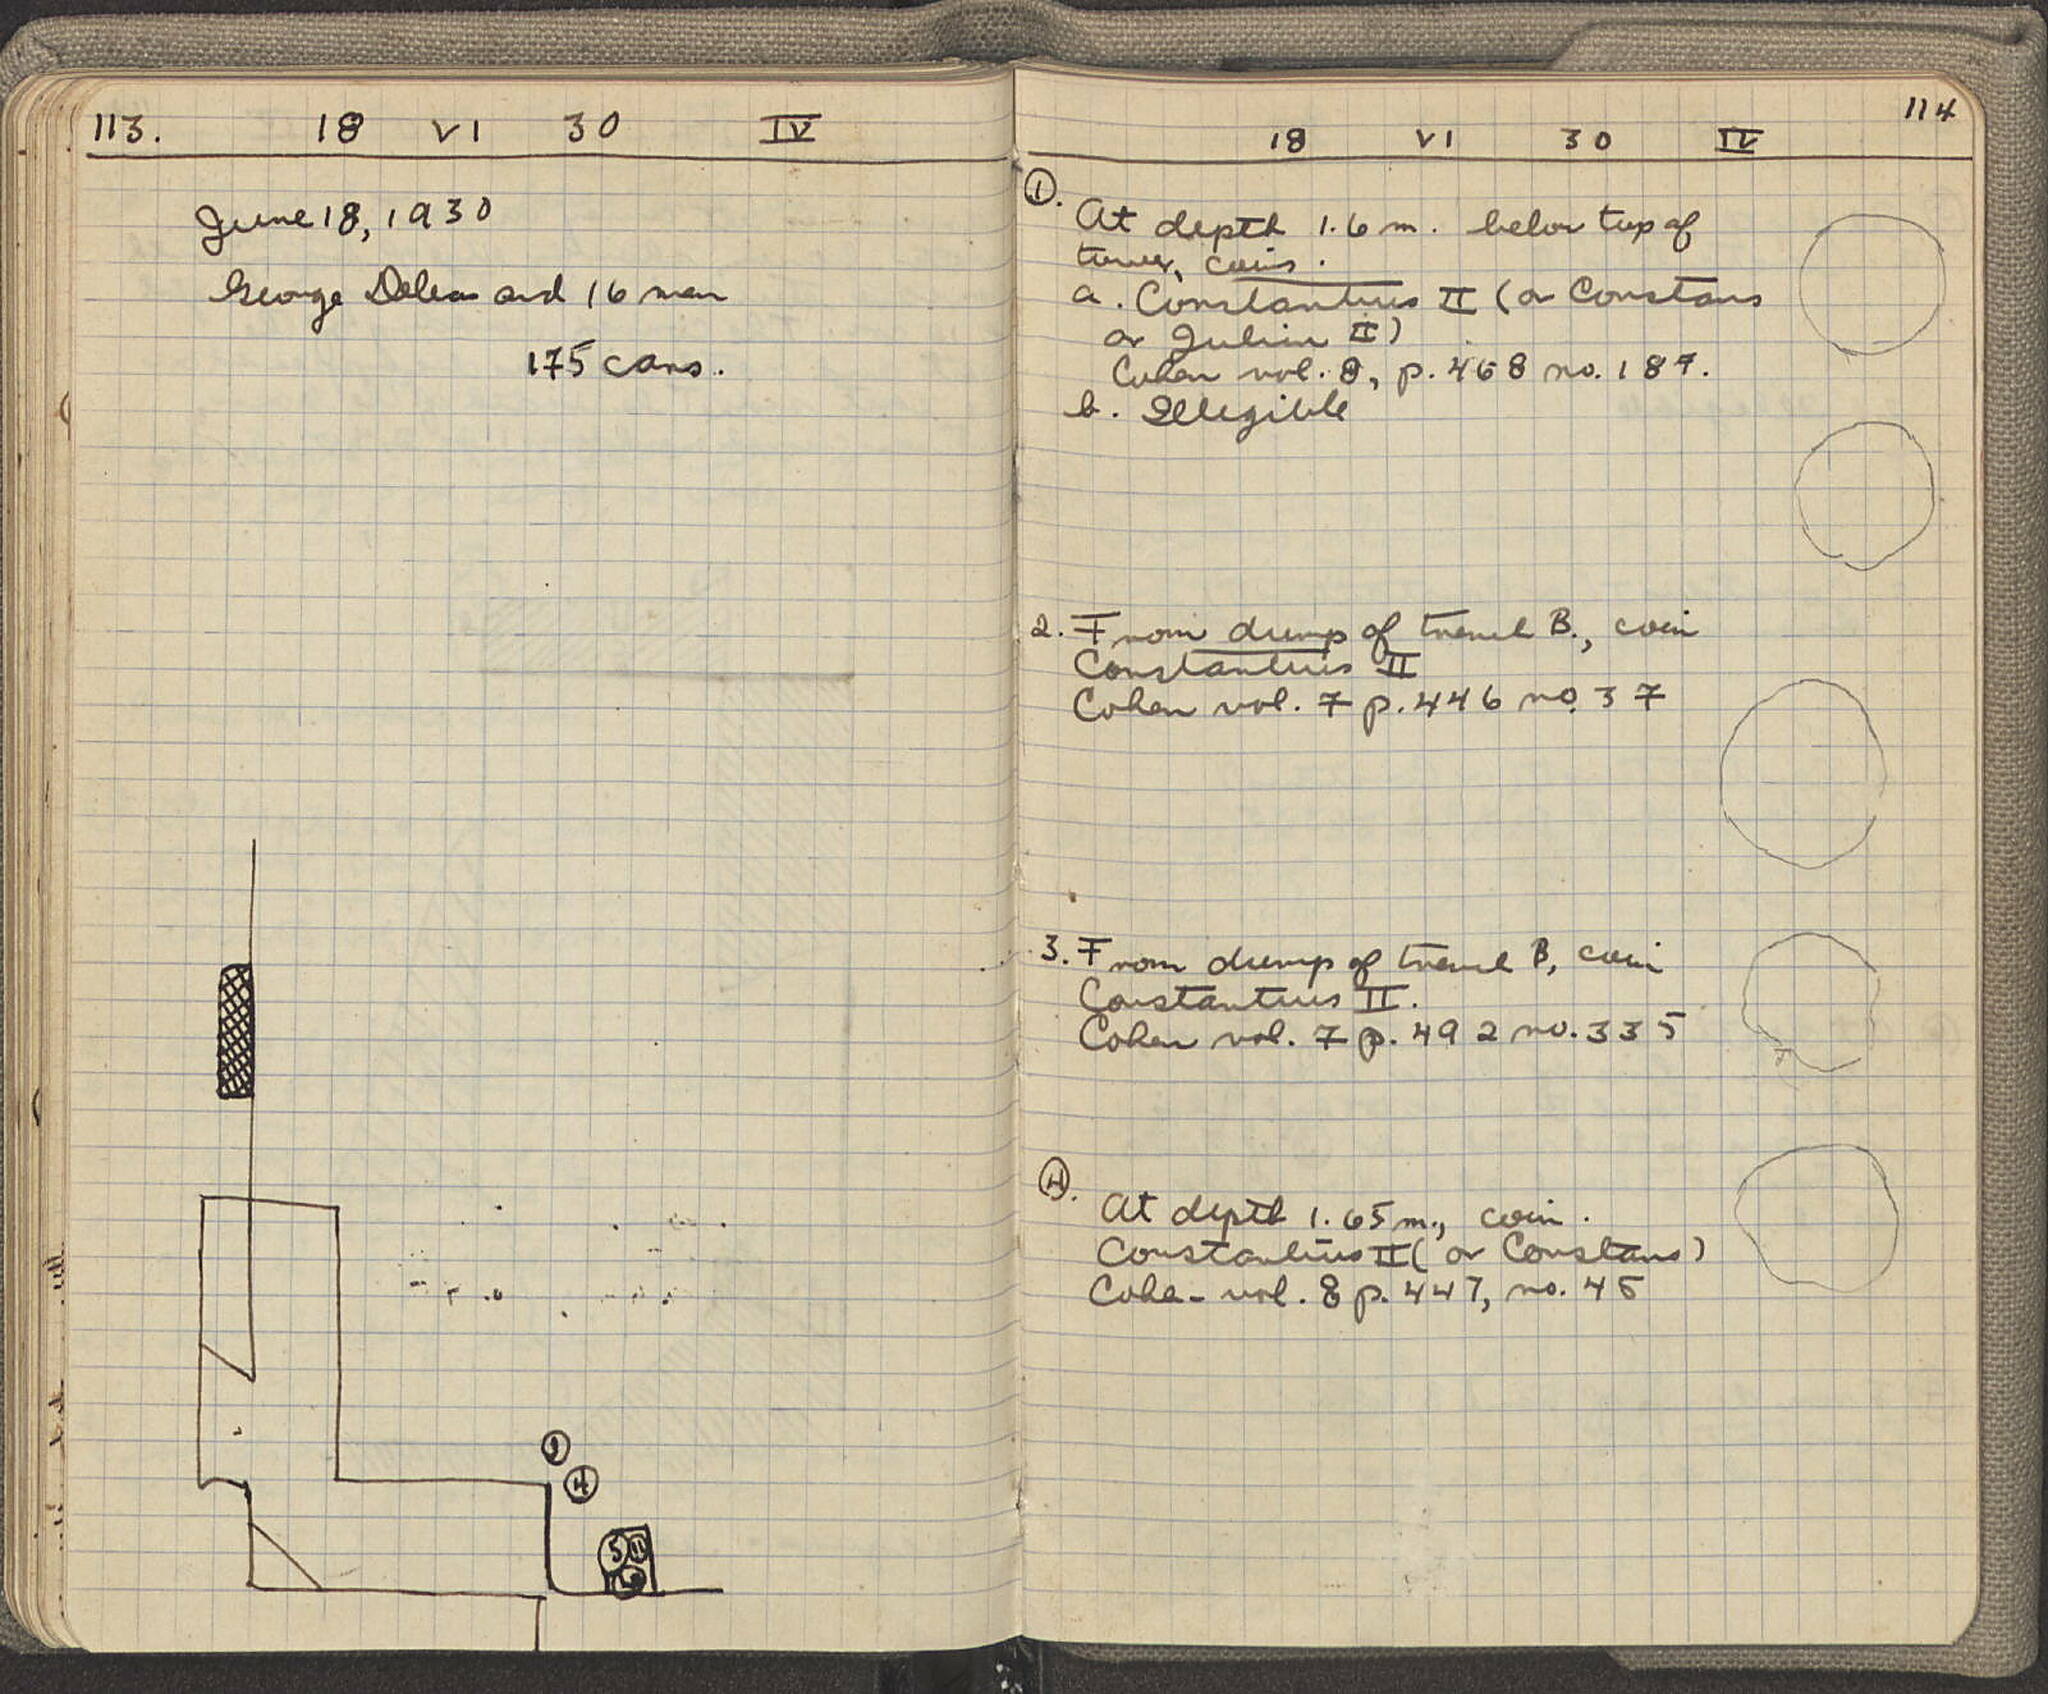 113. 18 VI 30 IV
June 18, 1930
George Deleas and 16 men
175 cars.
1
4
5 11
6
114
18 VI 30 IV
1.
At depth 1.6 m. below top of
tower, coins.
a. Constantius II (or Constans
or Julian II)
Cohen vol. 8, p. 468 no. 187.
b. Illegible
2. From dump of trench B., coin
Constantius II
Cohen vol. 7 p. 446 no. 37
3. From dump of trench B, coin
Constantius II.
Cohen vol. 7 p. 492 no. 335
4.
At depth 1.65 m., coin.
Constantius II (or Constans)
Cohen vol. 8 p. 447, no. 45